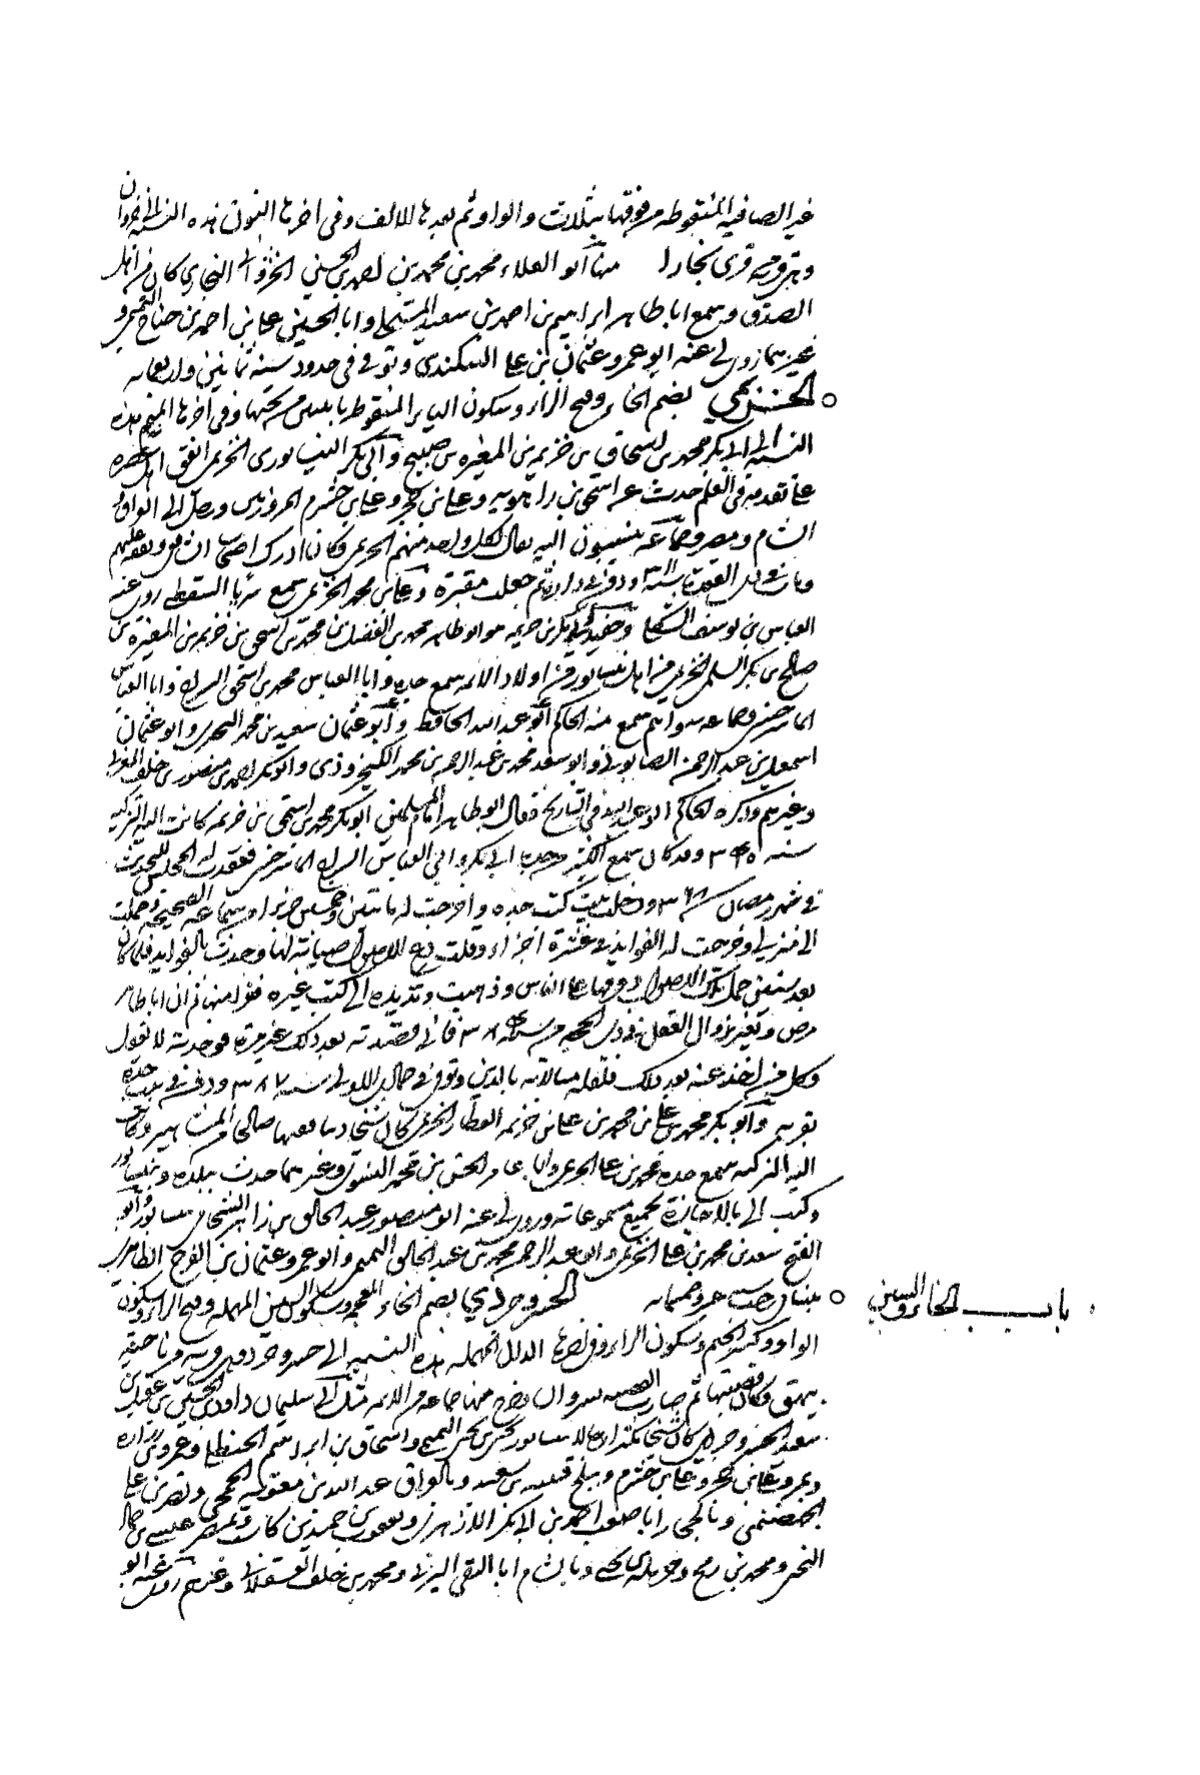 غير الصافيه المنقوطه من فوقها بثلاث والواو ثم بعدها الالف وفى اخرها النون هذه النسبه الى خزوان
وهى قريه من قرى بخارا منها ابو العلاء محمد بن محمد بن احمد بن الحسنى الخزوانى البخارى كان من اهل
الصدق وسمع ابا طاهر ابراهيم بن احمد بن سعيد المستملى وابا الحسين على بن احمد بن جناح التميمى و
غيرهما روى عنه ابو عمرو عثمان بن على البيكندى وتوفى فى حدود سنة ثمانين واربعمايه
○ الخزيمى بضم الخاء وفتح الزاء وسكون الياء المنقوطه باثنتين من تحتها وفى اخرها الميم هذه
النسبه الى ابى بكر محمد بن اسحاق بن خزيمه بن المغيره بن صالح وابى بكر النيسابورى الخزيمى اتفق اهل عصره
على تقدمه فى العلم حدث عن اسحق بن راهويه وعلى بن حجر وعلى بن خشرم المروزيين ورحل الى العراق و
الشام ومصر وجماعه ينسبون اليه يقال لكل واحد منهم الخزيمى وكان ادرك اصحاب الشافعى وتفقه عليهم
ومات فى ذى القعده سنة ٣١١ ودفن فى داره ثم جعلت مقبرة وعلى بن محمد الخزيمى سمع سريا السقطى روى عنه
العباس بن يوسف الشكلى وحفيد ابى بكر بن خزيمه هو ابو طاهر محمد بن الفضل بن محمد بن اسحق بن خزيمه بن المغيره بن
صالح بن بكر السلمى الخزيمى من اهل نيسابور من اولاد الائمه سمع جده وابا العباس محمد بن اسحق السراج وابا العباس
الماسرجسى وجماعه سواهم سمع منه الحاكم ابو عبد الله الحافظ وابو عثمان سعيد بن محمد البحيرى وابو عثمان
اسمعيل بن عبد الرحمن الصابونى وابو سعد محمد بن عبد الرحمن بن محمد الكنجروذى وابو بكر احمد بن منصور بن خلف المغربى
وغيرهم وذكره الحاكم ابو عبد الله فى التاريخ فقال ابو طاهر ابن ابى بكر محمد بن اسحق بن خزيمه كانت اليه التزكيه
سنه وقد كان سمع الكثير من جده ابى بكر وابى العباس السراج الماسرجسى فعقدت له المجلس للتحديث
فى شهر رمضان سنة ودخلت بيت كتب جده واخرجت له مائتين وخمسين جزءا من سماعاته الصحيحه وحملت
الى منزلى وخرجت له الفوايد فى عشرة اجزاء وقلت دع الاصول صيانة لها وحدث بالفوايد فلما كان
بعد سنتين حمل تلك الاصول وفرقها على الناس وذهبت ومد يده الى كتب غيره فقرا منها ثم ان ابا طاهر
مرض وتغير بزوال العقل فى ذى الحجه من سنه ٣٨٤ فانى قصدته بعد ذلك غير مرة فوجدته لا يعقل
وكل من اخذ عنه بعد ذلك فلقله مبالاته بالدين وتوفى فى جمادى الاولى سنه ٣٨٧ ودفن فى بيت جده
بقربه وابو بكر محمد بن على بن محمد بن على بن خزيمه العطار الخزيمى كان شيخا صالحا من المشاهير وكانت
اليه التزكيه سمع جده محمد بن على الخزيمى وابا عامر الحسن بن محمد النسوى وغيرهما حدث ببلده ونيسابور
وكتب الى بالاجازة بجميع مسموعاته وروى لى عنه ابو منصور عبد الخالق بن زاهر الشحامى بنيسابور وابو
الفتح سعد بن محمد بن على الخزيمى وابو عبد الرحمن محمد بن عبد الخالق التميمى وابو عمرو عثمان بن ابى الفرج الطاهرى
بنسا
، باب الخاء والسين
○ الخسروجردى بضم الخاء المعجمه وسكون السين المهمله وفتح الراء وسكون
الواو وكسر الجيم وسكون الراء وفى اخرها الدال المهمله هذه النسبه الى خسروجرد وهى قريه من ناحيه
بيهق وكانت قصبتها ثم صارت القصبه سبزوار خرج منها جماعه من الائمه مثل ابى سليمان داود بن الحسين بن عقيل بن
سعيد الخسروجردى كان شيخا مكثرا رحالا بنيسابور يحيى بن يحيى التميمى واسحاق بن ابراهيم الحنظلى وعمرو بن زراره
وبمرو على بن حجر وعلى بن خشرم وببلخ قتيبه بن سعيد وبالعراق عبد الله بن معويه الجمحى ونصر بن على
الجهضمى وبالحجاز ابا مصعب احمد بن ابى بكر الزهرى ويعقوب بن حميد بن كاسب وبمصر عيسى بن حماد
التجيبى ومحمد بن رمح وحرمله بن يحيى وبالشام ابا التقى اليزنى ومحمد بن خلف العسقلانى وغيرهم روى عنه ابو